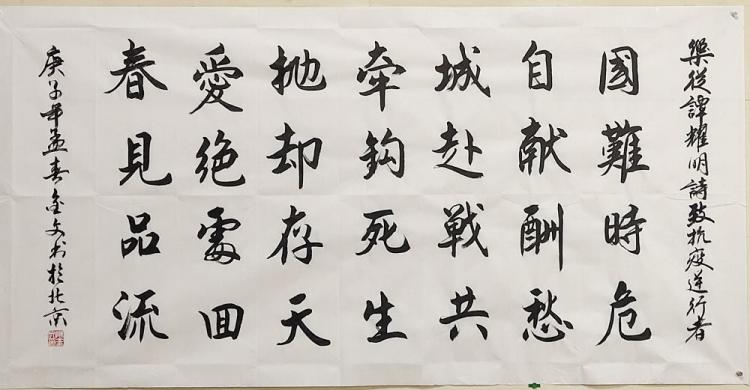 樂從譚耀明詩致抗疫逆行者
國難時危
自献酬愁
城赴戰共
牵鈎死生
抛却存天
愛絶處回
春見品流
庚子年孟春金文书於北京